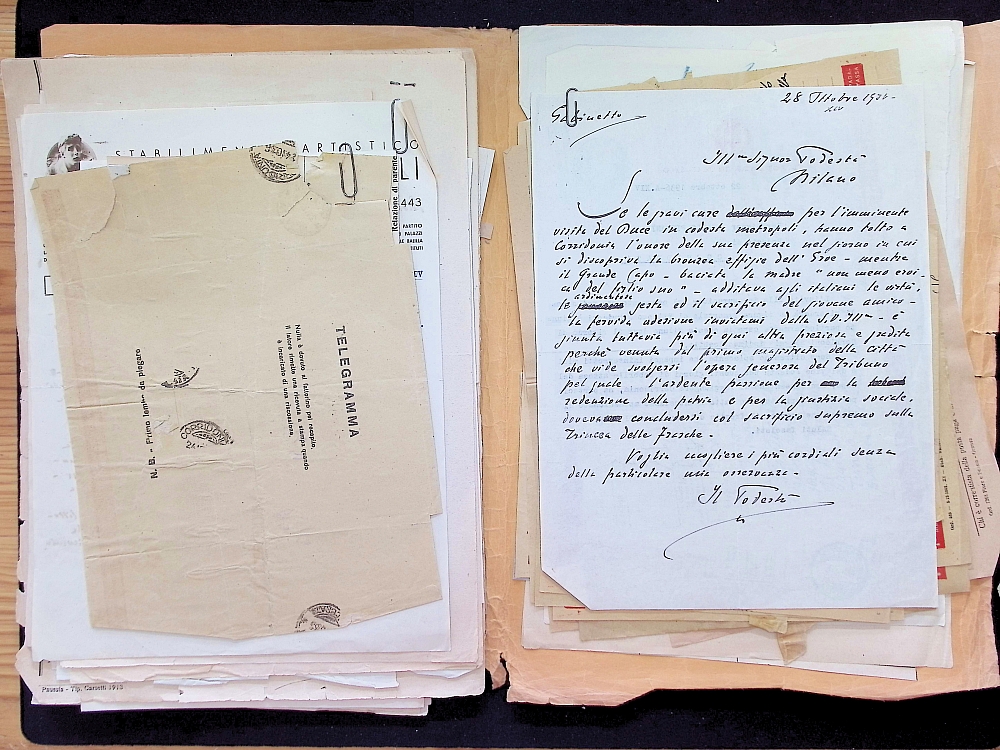 STABILIMENTO ARTISTICO
LI
443
PARTITO
PALAZZI
BALILLA
Relazione di parente
TELEGRAMMA
Nulla è dovuto al fattorino pel recapito.
Il fattorino rimette una ricevuta a stampa quando
è incaricato di una riscossione.
N. B. - Primo lembo da piegare
CORRIDONIA
Pausula - Tip. Carsetti 1913
28 Ottobre 193
XIV
Gabinetto
Ill.mo Signor Podestà
Milano
Se le gravi cure per l'imminente
visita del Duce in codesta metropoli, hanno tolto a
Corridonia l'onore della sua presenza nel giorno in cui
si discopriva la bronzea effigie dell'Eroe - mentre
il Grande Capo - baciata la madre "non meno eroi
ca del figlio suo" - additava agli italiani le virtù,
le ardimentose gesta ed il sacrificio del giovane amico -
la fervida adesione inviatami dalla S.V. Ill.ma - è
giunta tuttavia più di ogni altra preziosa e gradita
perchè venuta dal primo magistrato della città
che vide svolgersi l'opera generosa del Tribuno
pel quale l'ardente passione per la
redenzione della patria e per la giustizia sociale,
doveva concludersi col sacrificio supremo sulla
Trincea delle Frasche.
Voglia accogliere i più cordiali sensi
della particolare mia osservanza.
Il Podestà
Chi è correntista della posta paga